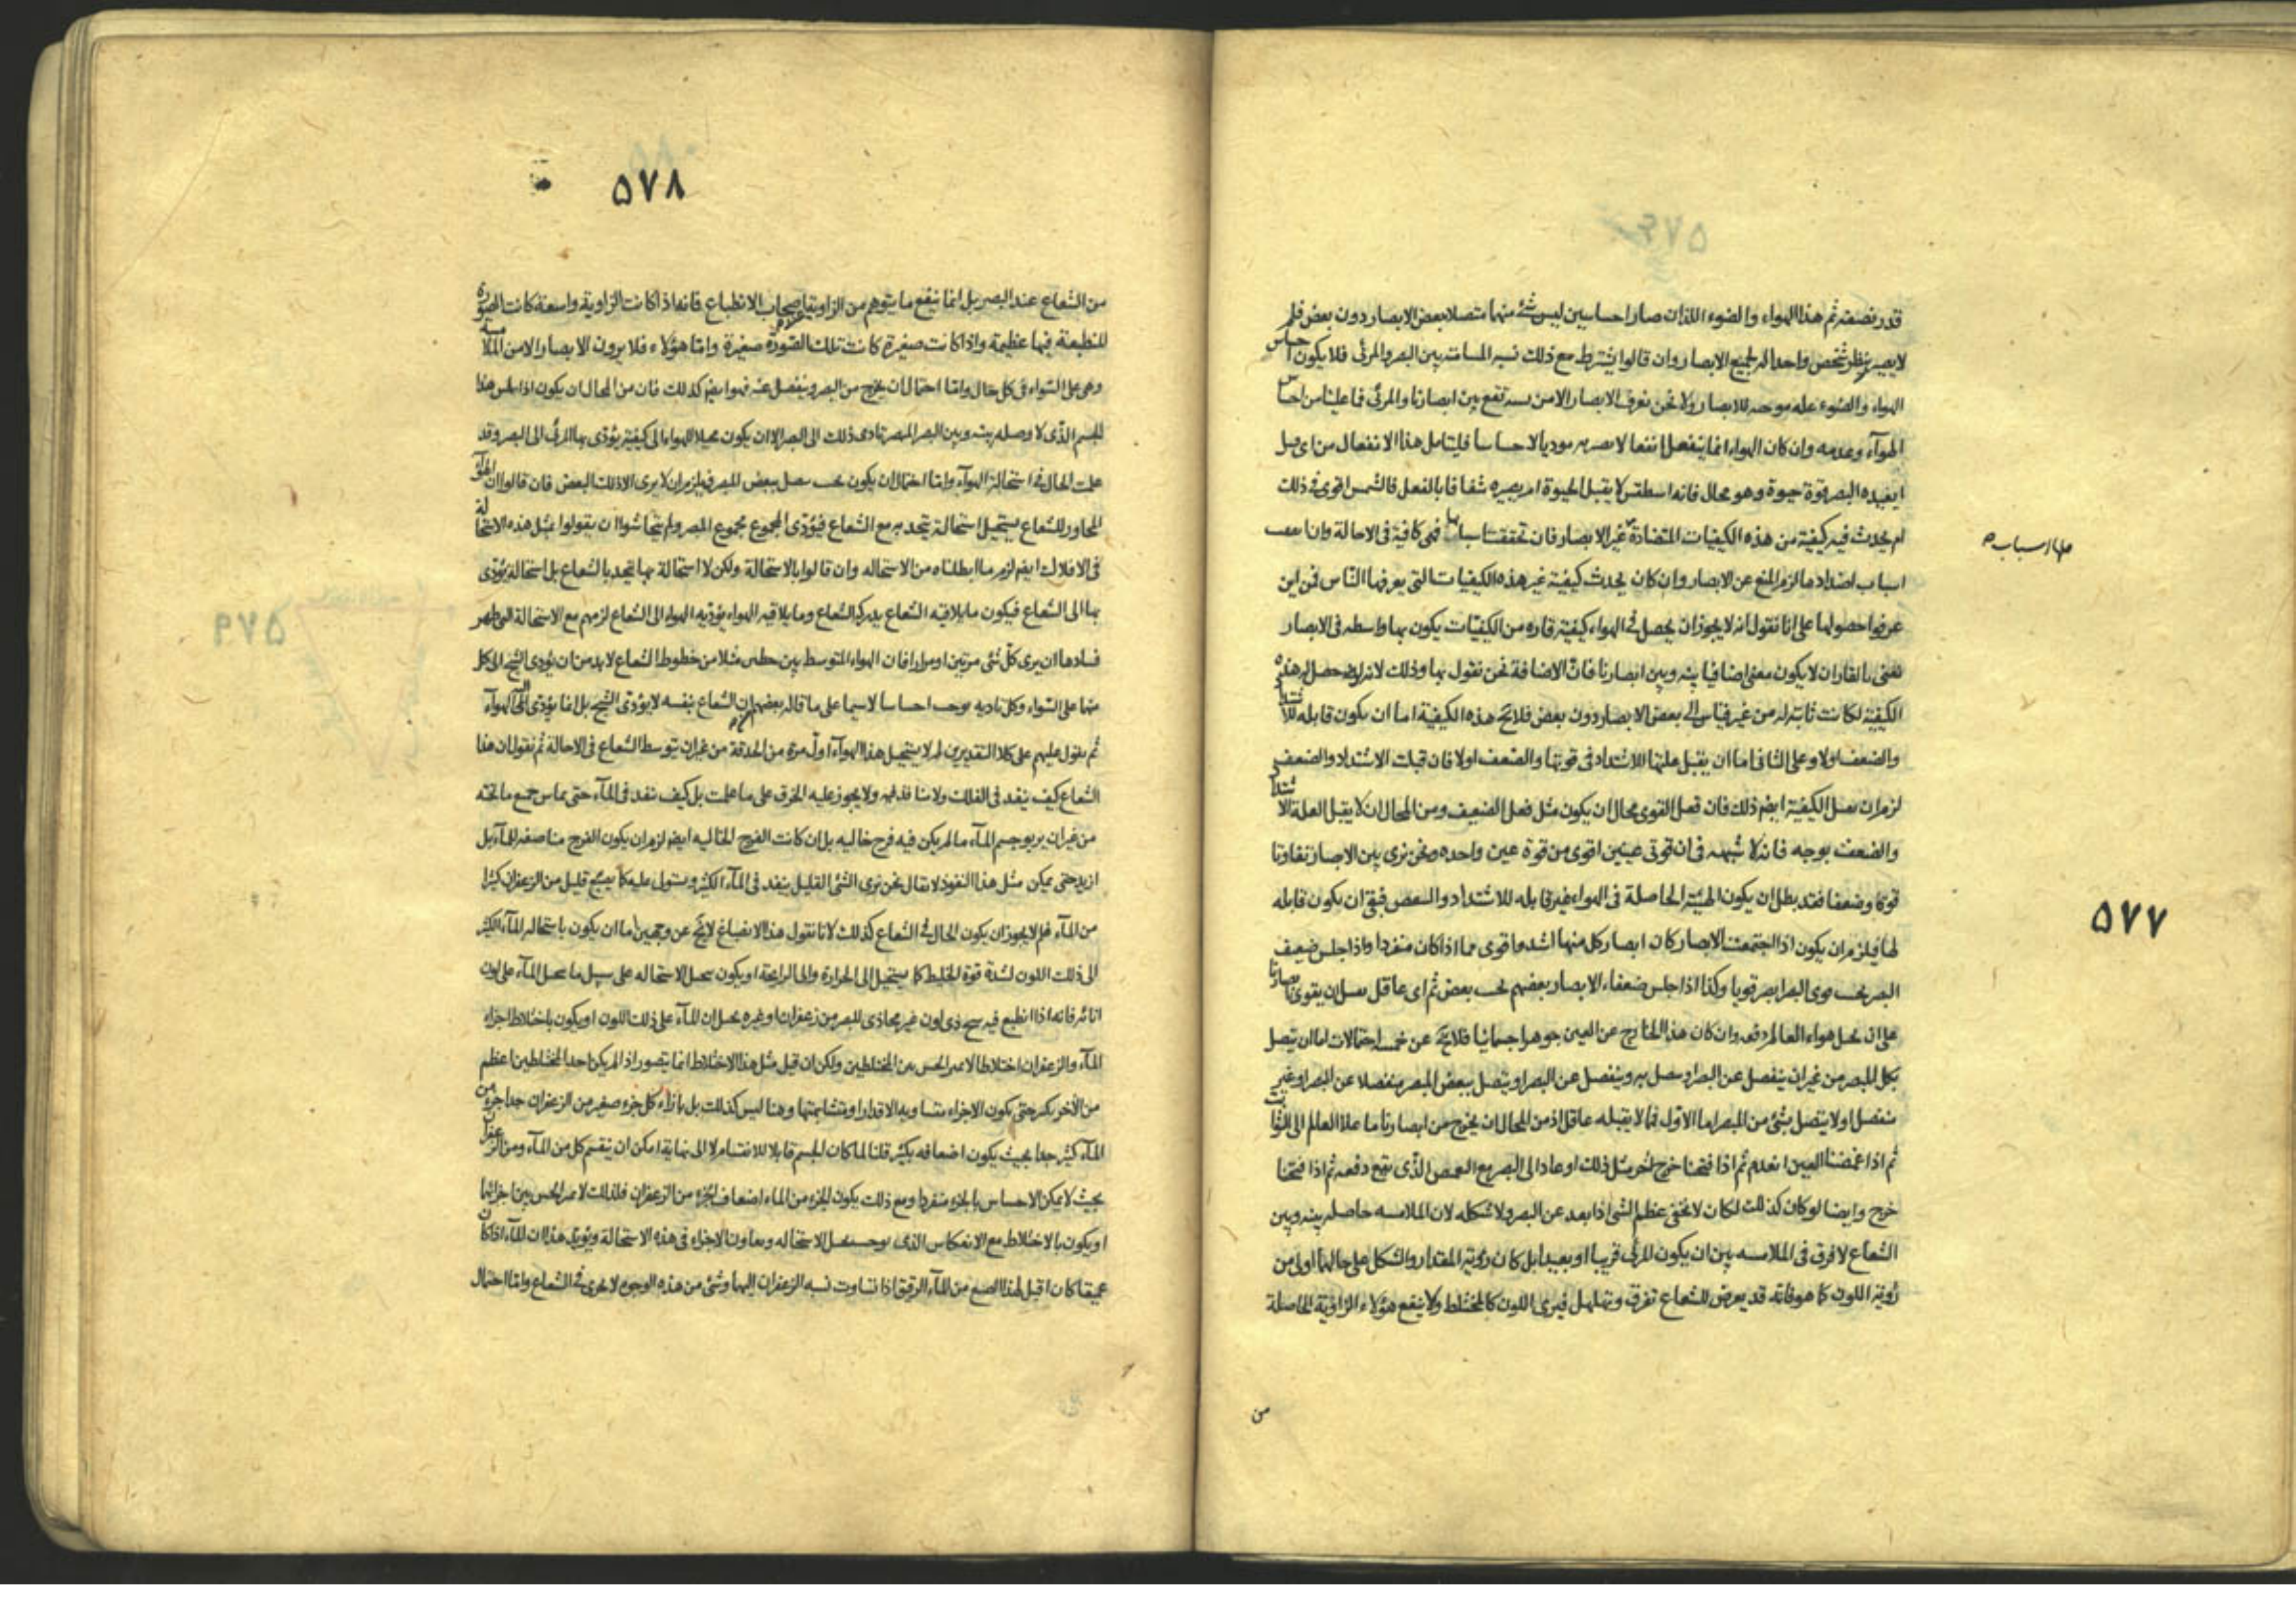 قدر نصفه ثم هذا الهواء والضوء اللذان صارا حساسين ليس شئ منهما متصلا ببعض الابصار دون بعض فلم
لا يبصر بنظر شخص واحد الى جميع الابصار وان قالوا يشترط مع ذلك نسبه المسامته بين البصر والمرئى فلا يكون احساس
الهواء والضوء عله موجبه للابصار ولا نحن نعرف الابصار الا من نسبه تقع بين ابصارنا والمرئى فما علينا من احساس
الهوآء وعدمه وان كان الهواء انما ينفعل انفعالا يصير به موديا لا حساسا فليتامل هذا الانفعال من اى قبيل
ايفيده البصر قوة حيوة وهو محال فانه اسطقس لا يقبل الحيوة ام يصيره شفافا بالفعل فالشمس اقوى فى ذلك
ام يحدث فيه كيفية من هذه الكيفيات المتضادة غير الابصار فان تحققت اسبابها فهى كافية فى الاحالة وان
اسباب اضدادها لزم المنع عن الابصار وان كان يحدث كيفية غير هذه الكيفيات التى يعرفها الناس فمن اين
عرفوا حصولها على انا نقول انه لا يجوز ان يحصل فى الهواء كيفية قاره من الكيفيات يكون بها واسطه فى الابصار
نعنى بالقار ان لا يكون معنى اضافيا بينه وبين ابصارنا فان الاضافة نحن نقول بها وذلك لانه لو حصل له هذه
الكيفية لكانت ثابته له من غير قياس الى بعض الابصار دون بعض فلا يخ هذه الكيفية اما ان يكون قابله للاشتداد
والضعف اولا وعلى الثانى اما ان يقبل علتها للاشتداد فى قوتها والضعف اولا فان قبلت الاشتداد والضعف
لزم ان الكيفية ايضم ذلك فان فعل القوى محال ان يكون مثل فعل الضعيف ومن المحال ان لا يقبل العلة الاشتداد
والضعف بوجه فانه لا شبهه فى ان قوتى عينين اقوى من قوة عين واحده ونحن نرى بين الابصار تفاوتا
قوة وضعفا فقد بطل ان يكون الهيئة الحاصلة فى الهواء غير قابله للاشتداد و فبقى ان يكون قابله
لها فيلزم ان يكون اذا اجتمعت الابصار كان ابصار كل منها اشد واقوى مما اذا كان منفردا واذا جلس ضعيف
البصر بجنب قوى البصر ابصر قويا وكذا اذا جلس ضعفاء الابصار بعضهم بجنب بعض ثم اى عاقل يقبل ان يقوى ابصارنا
على ان هواء العالم دفعه وان كان هذا الخارج عن العين جوهرا جسمانيا فلا يخ عن خمسه احتمالات اما ان يتصل
بكل المبصر من غير ان ينفصل عن البصر او يتصل به وينفصل عن البصر او يتصل ببعض المبصر منفصلا عن البصر او غير
منفصل او لا يتصل بشئ من المبصر اما الاول فما لا يقبله عاقل اذ من المحال ان يخرج من ابصارنا ما علا العالم الى الثوابت
ثم اذا غمضنا العين انعدم ثم اذا فتحنا خرج اخر مثل ذلك او عاد الى البصر مع الغمض الذى يقع دفعه ثم اذا فتحنا
خرج وايضا لو كان كذلك لكان لا يخفى عظم الشئ اذا بعد عن البصر ولا شكله لان الملامسه حاصله بينه وبين
الشعاع لا فرق فى الملامسه بين ان يكون المرئى قريبا او بعيدا بل كان رؤية المقدار والشكل على حالهما اولى من
رؤية اللون كما هو فانه قد يعرض للشعاع تفرق وتهلهل فيرى اللون كالمختلط ولا ينفع هؤلاء الزاوية الحاصلة
من
اسباب
٥٧٧
٥٧٨
من الشعاع عند البصر بل انما ينفع ما يتوهم من الزاوية اصحاب الانطباع فانه اذا كانت الزاوية واسعة كانت الصورة
المنطبعة فيها عظيمة واذا كانت صغيرة كانت تلك الصورة صغيرة واما هؤلاء فلا يرون الابصار الا من الملامسه
وهى على السواء فى كل حال واما احتمال ان يخرج من البصر وينفصل عنه فهو ايضم كذلك فان من المحال ان يكون اذا لمس هذا
الجسم الذى لا وصله بينه وبين البصر المبصر تادى ذلك الى البصر الا ان يكون محيلا للهواء الى كيفية يؤدى بها المرئى الى البصر وقد
علمت الحال فى استحالة الهوآء واما احتمال ان يكون ببعض المبصر فيلزم ان لا يرى الا ذلك البعض فان قالوا ان الهوآء
المجاور للشعاع يستحيل استحالة يتحد به مع الشعاع فيؤدى المجموع مجموع المبصر ولم يتحاشوا ان يقولوا بمثل هذه الاستحالة
فى الافلاك ايضم لزم ما ابطلناه من الاستحاله وان قالوا بالاستحالة ولكن لا استحالة بها يتحد بالشعاع بل استحالة يؤدى
بها الى الشعاع فيكون ما يلاقيه الشعاع يدركه الشعاع وما يلاقيه الهواء يؤديه الهواء الى الشعاع لزمهم مع الاستحالة التى ظهر
فسادها ان يرى كل شئ مرتين او مرارا فان الهواء المتوسط بين خطين مثلا من خطوط الشعاع لا بد من ان يؤدى الشبح الى كل
منهما على السواء وكل تاديه يوجب احساسا لا سيما على ما قاله بعضهم ان الشعاع بنفسه لا يؤدى الشبح بل انما يؤدى الى الهوآء
ثم نقول عليهم على كلا التقديرين لم لا يستحيل هذا الهوآء اول مرة من الحدقة من غير ان يتوسط الشعاع فى الاحالة ثم نقول ان هذا
الشعاع كيف ينفذ فى الفلك ولا منافذ فيه ولا يجوز عليه الخرق على ما علمت بل كيف ينفذ فى المآء حتى يماس جميع ما تحته
من غير ان يربو جسم المآء ما لم يكن فيه فرج خاليه بل ان كانت الفرج الخاليه ايضم لزم ان يكون الفرج مناصفه المآء بل
ازيد حتى يمكن مثل هذا النفوذ لا يقال نحن نرى الشئ القليل ينفذ فى المآء الكثير ويستولى عليه كما يصبغ قليل من الزعفران كثيرا
من المآء فلم لا يجوز ان يكون الحال فى الشعاع كذلك لانا نقول هذا الانصباغ لا يخ عن وجهين اما ان يكون باستحاله المآء الكثير
الى ذلك اللون لشدة قوة الخليط كما يستحيل الى الحرارة والى الرايحة او يكون الاستحاله على سبيل ما المآء على لون
انائه فانه اذا انطبع فيه شبح ذى لون غير محاذى للبصر من زعفران او غيره ان المآء على ذلك اللون او يكون باختلاط اجزاء
المآء والزعفران اختلاطا لا يميز الحس بين المختلطين ولكن ان قيل مثل هذا الاختلاط انما يتصور اذا لم يكن احد المختلطين اعظم
من الآخر بكثير حتى يكون الاجزاء متساويه الاقدار او متشابهتها وهنا ليس كذلك بل بازآء كل جزء صغير من الزعفران جدا جزء من
المآء كثير جدا بحيث يكون اضعافه بكثير قلنا لما كان الجسم قابلا للانقسام لا الى نهاية امكن ان ينقسم كل من المآء ومن الزعفران
بحيث لا يمكن الاحساس بالجزء منفردا ومع ذلك يكون الجزء من الماء اضعاف الجزء من الزعفران فلذلك لا يميز الحس بين اجزائهما
او يكون بالاختلاط مع الانعكاس الذى الاستحاله ومعاونة الاجزاء فى هذه الاستحالة ويؤيد هذا ان المآء اذا كان
عميقا كان اقبل لهذا الصبغ من المآء الرقيق اذا تساوت نسبه الزعفران اليهما وشئ من هذه الوجوه لا يجرى فى الشعاع واما احتمال